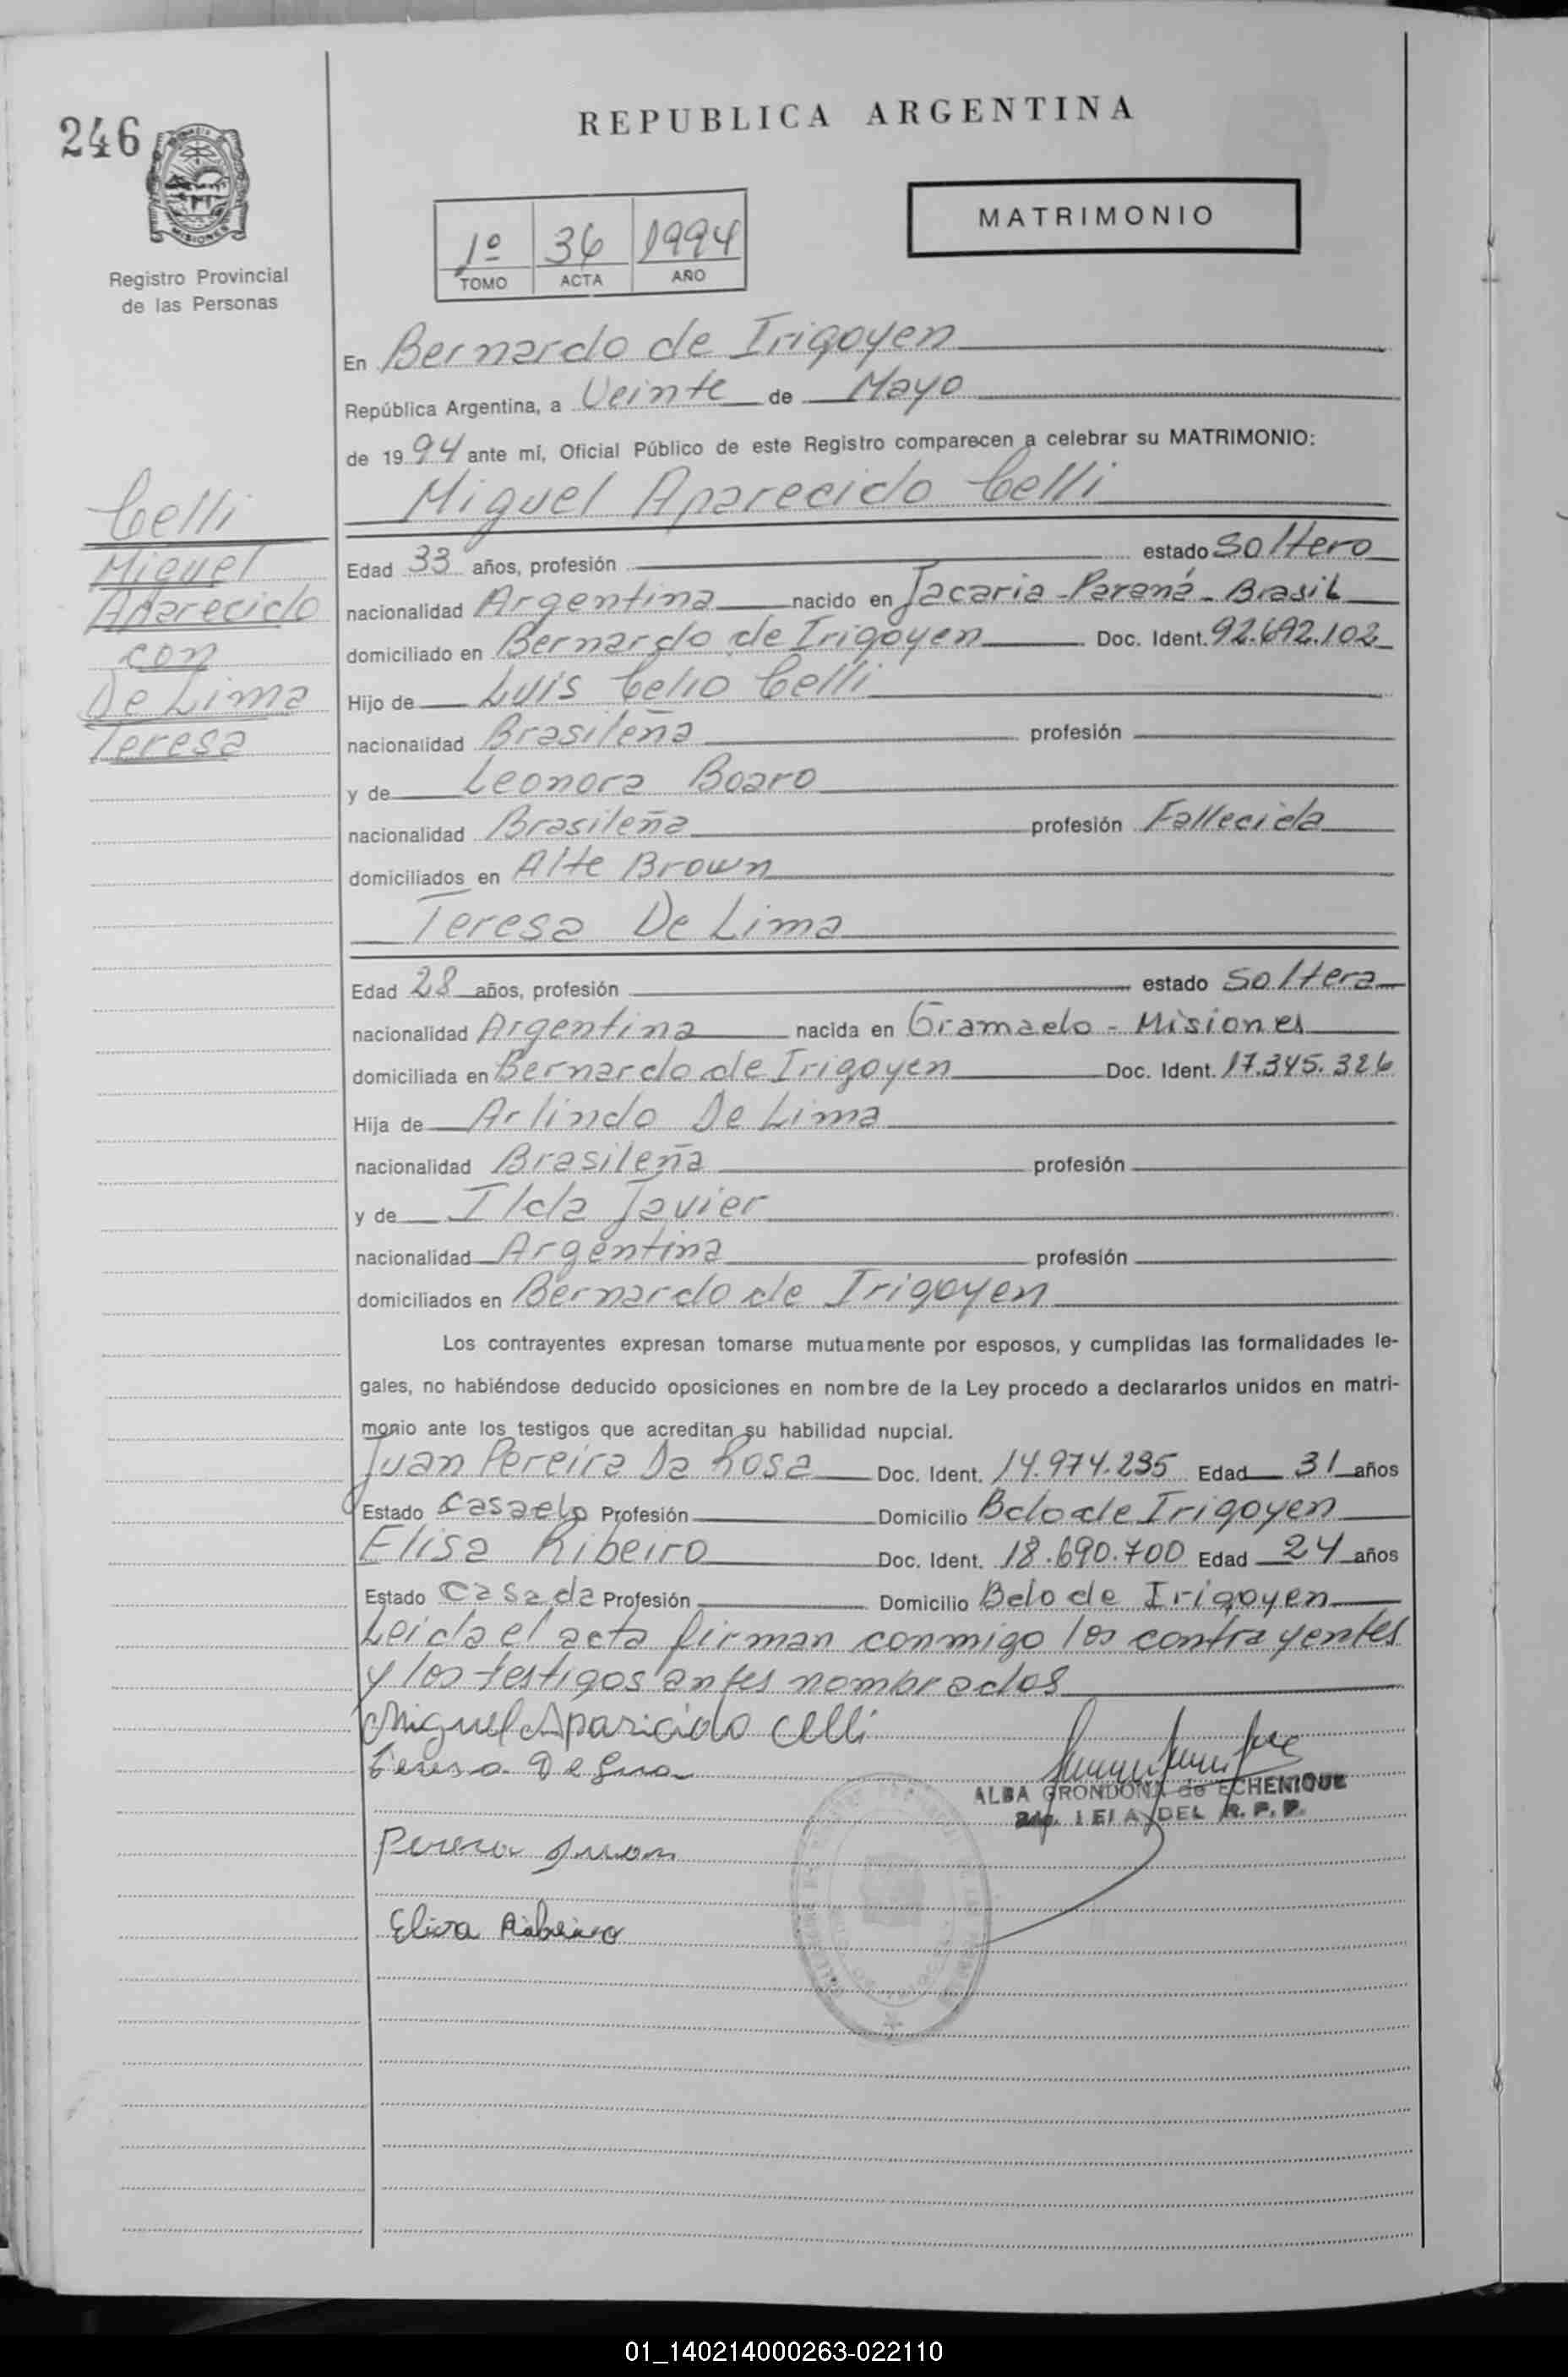 246
REPUBLICA ARGENTINA
MISIONES
Registro Provincial
de las Personas
1º 36 1994
TOMO ACTA AÑO
MATRIMONIO
En Bernardo de Irigoyen
República Argentina, a Veinte de Mayo
de 1994 ante mí, Oficial Público de este Registro comparecen a celebrar su MATRIMONIO:
Miguel Aparecido Celli
Celli
Miguel
Aparecido
con
De Lima
Teresa
Edad 33 años, profesión estado Soltero
nacionalidad Argentina nacido en Jacaria - Paraná - Brasil
domiciliado en Bernardo de Irigoyen Doc. Ident. 92.692.102
Hijo de Luis Celio Celli
nacionalidad Brasileña profesión
y de Leonora Boaro
nacionalidad Brasileña profesión Fallecida
domiciliados en Alte Brown
Teresa De Lima
Edad 28 años, profesión estado Soltera
nacionalidad Argentina nacida en Gramado - Misiones
domiciliada en Bernardo de Irigoyen Doc. Ident. 17.345.326
Hija de Arlindo De Lima
nacionalidad Brasileña profesión
y de Ilda Javier
nacionalidad Argentina profesión
domiciliados en Bernardo de Irigoyen
Los contrayentes expresan tomarse mutuamente por esposos, y cumplidas las formalidades le-
gales, no habiéndose deducido oposiciones en nombre de la Ley procedo a declararlos unidos en matri-
monio ante los testigos que acreditan su habilidad nupcial.
Juan Pereira Da Rosa Doc. Ident. 14.974.235 Edad 31 años
Estado Casado Profesión Domicilio Bdo de Irigoyen
Elisa Ribeiro Doc. Ident. 18.690.700 Edad 24 años
Estado Casada Profesión Domicilio Bdo de Irigoyen
Leida el acta firman conmigo los contrayentes
y los testigos antes nombrados
Miguel Aparicido Celli
Teresa De Lima
ALBA GRONDONA de ECHENIQUE
DEL R. P. P.
Pereira Juan
Elisa Ribeiro
01_140214000263-022110